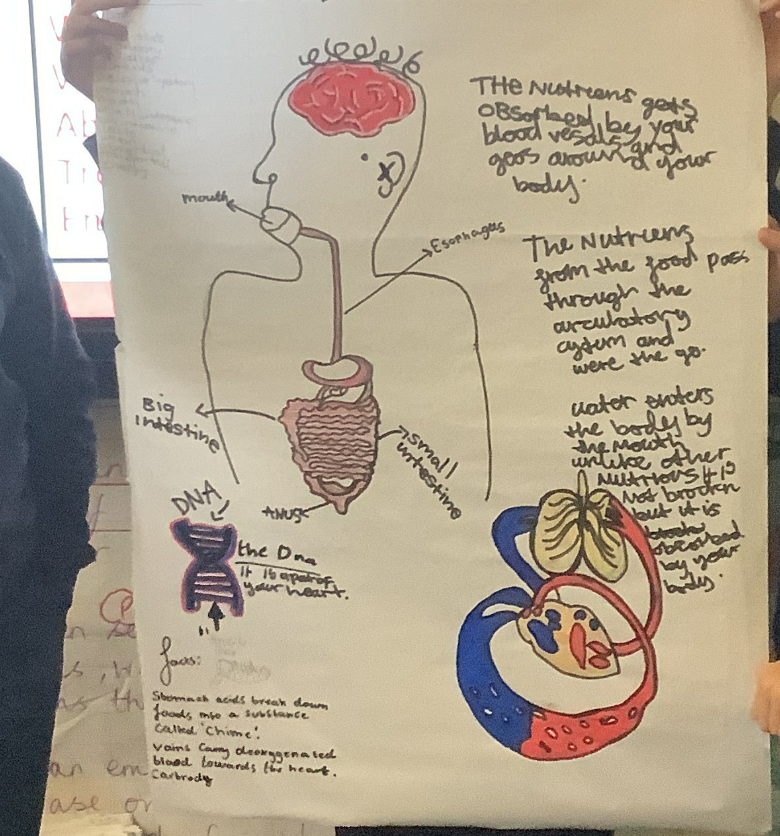 THE Nutriens gets
obsorbed by your
blood vesals and
goes around your
body.
mouth
Esophagus
The Nutriens
from the food pass
through the
circulatory
cytem and
were the go.
Big
intestine
small
intestine
Anus
water enters
the body by
the mouth
unlike other
Nutrions it is
Not brocken
but it is
obsorbed
by your
body.
DNA
the Dna
it is apart of
your heart.
facs:
Stomach acids break down
foods into a substance
called 'Chime'.
vains Carry deoxygenated
blood towards the heart.
Carbrody